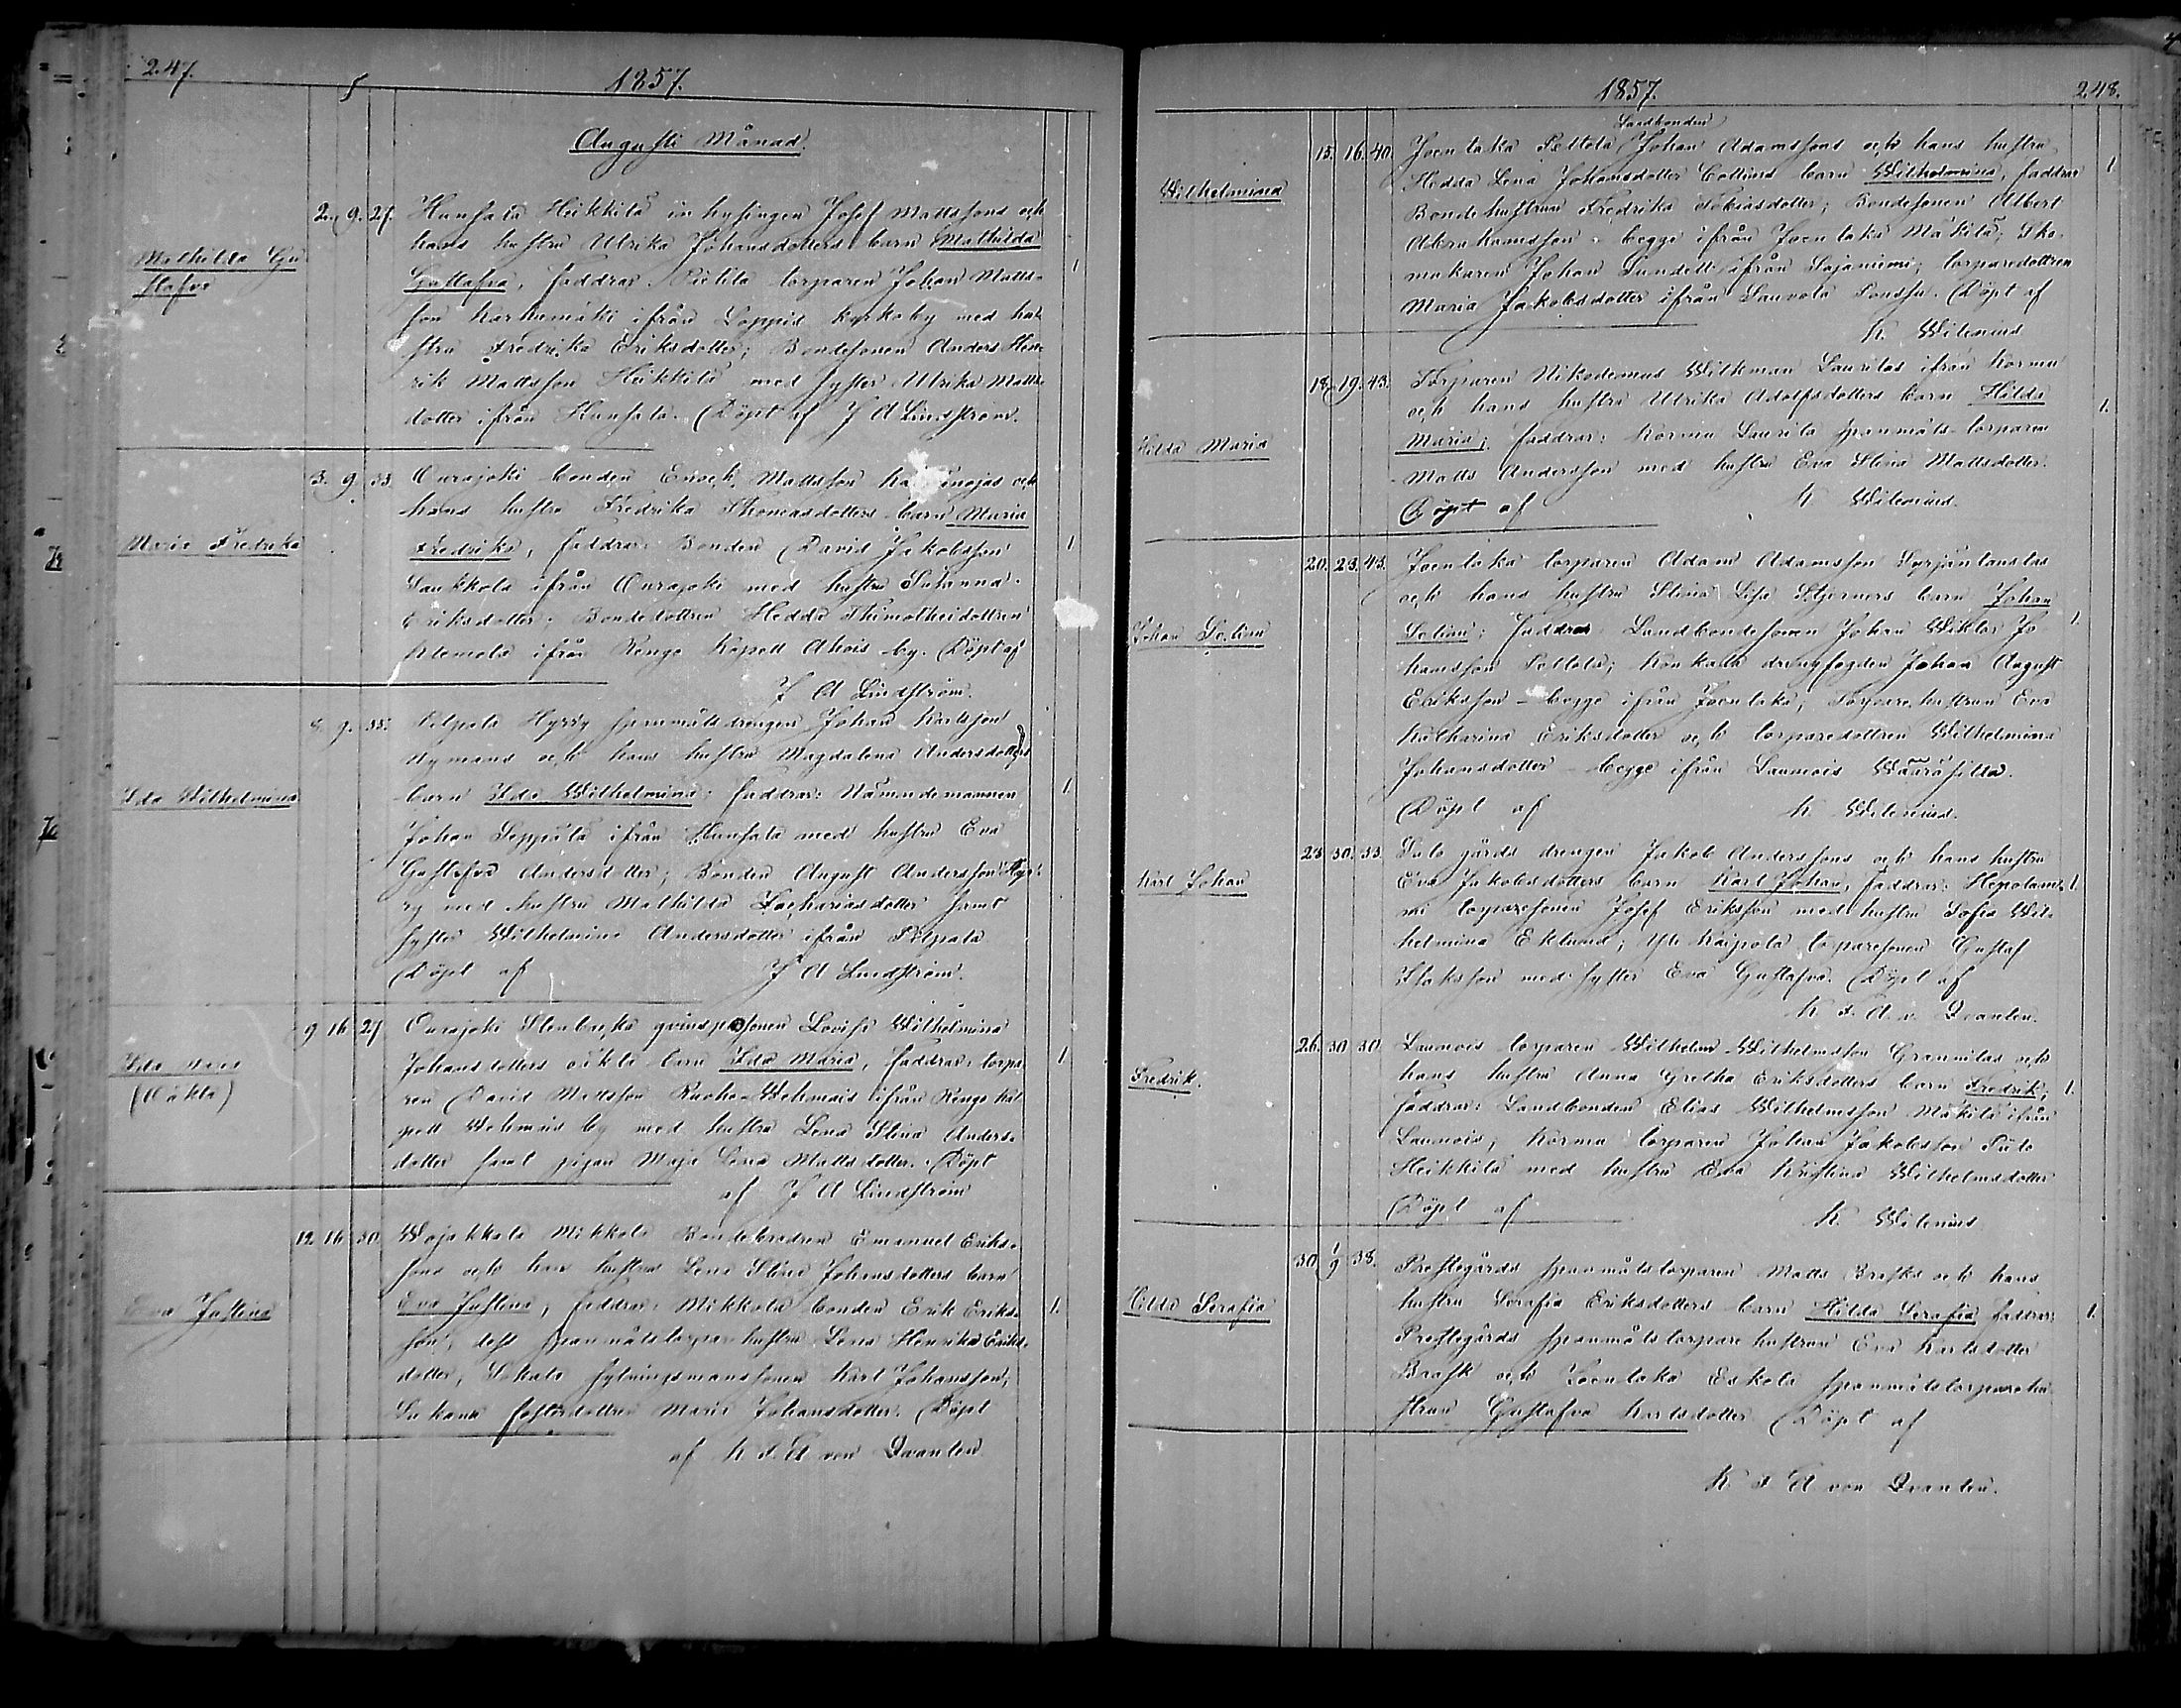 247.
1857.
Augusti Månad.
Mathilda Gu
stafva
2. 9. 27. Hunsala Heikkilä inhysingen Josef Mattssons och
hans hustru Ulrika Johansdotters barn Mathilda
Gustafva, faddrar: torparen Johan Matts-
son Harhamäki ifrån Loppis kyrkoby med hu-
stru Fredrika Eriksdotter; Bondesonen Anders Hen-
rik Mattsson Heikkilä med syster Ulrika Matts-
dotter ifrån Hunsala. Döpt af J A Lindström.
1
Maria Fredrika
3. 9. 33. Ourajoki bonden Enock Mattsson och
hans hustru Fredrika Thomasdotters barn Maria
Fredrika, faddrar: Bonden David Jakobsson
Laukkola ifrån Ourajoki med hustru Susanna
Eriksdotter; Bondedottren Hedda Thimotheidottren
Alemola ifrån Renge Kapell Ahois by. Döpt af
J A Lindström.
1
Ida Wilhelmina
8. 9. 35. Pilpala Hyrsy spanmålsdrengen Johan Karlsson
Nymans och hans hustru Magdalena Andersdotters
barn Ida Wilhelmina; faddrar: Nämndemannen
Johan Seppälä ifrån Hunsala med hustru Eva
Gustafva Andersdotter; Bonden August Andersson Hyr-
sy med hustru Mathilda Zachariasdotter samt
syster Wilhelmina Andersdotter ifrån Pilpala
Döpt af J A Lindström.
1
Ida Maria
(Oäkta)
9 16 27 Ourajoki Stenbacka qvinspersonen Lovisa Wilhelmina
Johansdotters oäkta barn Ida Maria, faddrar: torpa-
ren David Mattsson Ruoho-Wehmais ifrån Renge Ka-
pell Wehmais by med hustru Lena Stina Anders-
dotter samt pigan Maja Lena Mattsdotter. Döpt
af J A Lindström
1
Eva Justina
12. 16. 30. Wojakkala Mikkola Bondebrodren Emanuel Eriks-
sons och hans hustrus Lena Stina Johansdotters barn
Eva Justina, faddrar: Mikkola bonden Erik Eriks-
son, dess spanmålstorpare hustru Lena Henrika Eriks-
dotter, Sokala sytningsmanssonen Karl Johansson,
fosterdottren Maria Johansdotter. Döpt
af K F A von Qvanten
1.
1857.
248.
Landbonden
Wilhelmina
15. 16. 40. Joenlaka Peltola Johan Adamssons och hans hustru
Hedda Lena Johansdotter Collins barn Wilhelmina, faddrar
Bondehustrun Fredrika Tobiasdotter; Bondesonen Albert
Abrahamsson - begge ifrån Joenlaka Mäkilä; Sko-
makaren Johan Sundell ifrån Sajaniemi; torparedottren
Maria Jakobsdotter ifrån Lauvola. Döpt af
K. Wilenius
1
Hilda Maria
18. 19. 43. Torparen Nikodemus Wilkman Laurilas ifrån Korma
och hans hustru Ulrika Adolfsdotters barn Hilda
Maria; faddrar: Korma Laurila spanmåls-torparen
Matts Andersson med hustru Eva Stina Mattsdotter.
Döpt af K Wilenius.
1.
Johan Selim
20. 23. 43. Joenlaka torparen Adam Adamsson Syrjänlanlas
och hans hustru Stina Lisa Stjerners barn Johan
Selim; faddrar Landbondesonen Johan Wiktor Jo-
hansson Peltola; drengfogden Johan August
Eriksson - begge ifrån Joenlaka; Torparehustrun Eva
Katharina Eriksdotter och torparedottren Wilhelmina
Johansdotter - begge ifrån Launois.
Döpt af K. Wilenius.
1.
Karl Johan
28 30. 33. gårds drengen Jakob Anderssons och hans hustru
Eva Jakobsdotters barn Karl Johan, faddrar:
torparesonen Josef Eriksson med hustru Sofia Wil-
helmina Eklund; Yli Kaipola torparesonen Gustaf
Isaksson med syster Eva Gustafva. Döpt af
K F. A. v. Qvanten.
1.
Fredrik.
26. 30 30. Launois torparen Wilhelm Wilhelmsson Grannilas och
hans hustru Anna Gretha Eriksdotters barn Fredrik;
faddrar: Landbonden Elias Wilhelmsson Mäkilä ifrån
Launois; Korma torparen Johan Jakobsson
Heikkilä med hustru Eva Kristina Wilhelmsdotter
Döpt af K. Wilenius
1.
Hilda Serafia
30 1/9 38. Prestegårds spanmålstorparen Matts Brasks och hans
hustru Serafia Eriksdotters barn Hilda Serafia faddrar:
Prestegårds spanmålstorpare hustrun Eva Karlsdotter
Brask och Joenlaka Eskola spanmålstorpare hu-
strun Gustafva Karlsdotter. Döpt af
K. F A von Qvanten.
1.